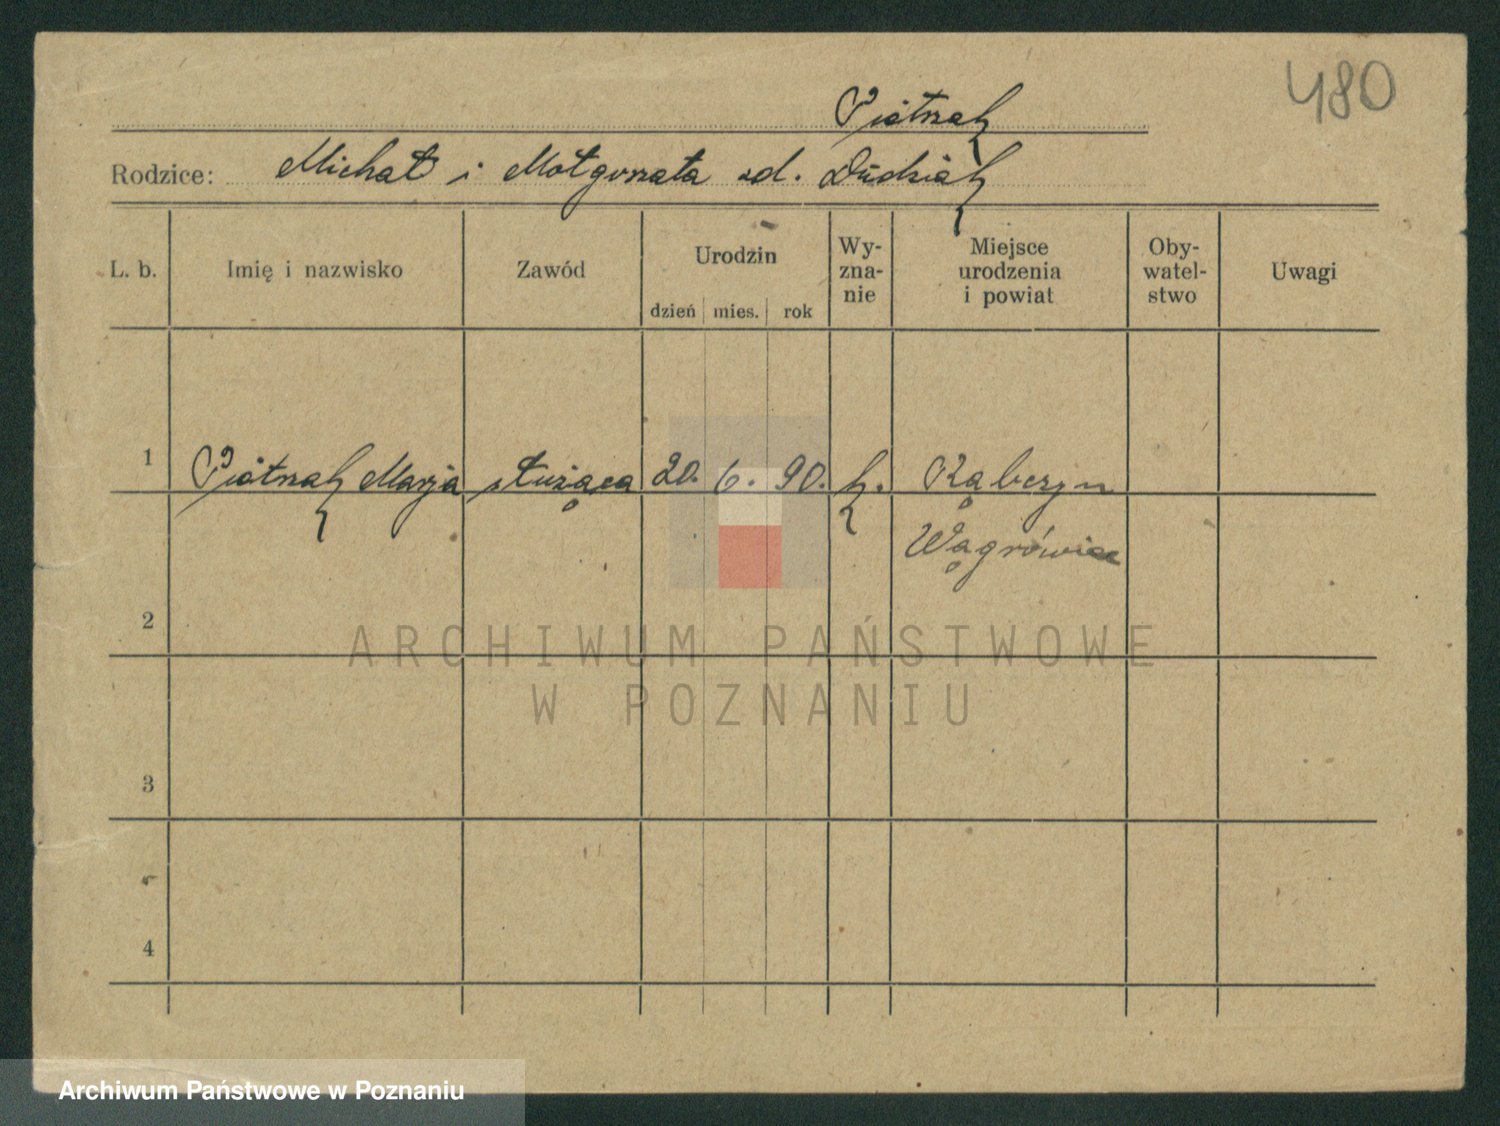 480
Piotrzak
Rodzice: Michał i Małgorzata zd. Dudziak
L. b. Imię i nazwisko Zawód Urodzin dzień mies. rok Wy-zna-nie Miejsce urodzenia i powiat Oby-watel-stwo Uwagi
1 Piotrzak Marja służąca 20. 6. 90. k. Rąbczyn
Wągrówiec
2
ARCHIWUM PAŃSTWOWE
W POZNANIU
3
4
Archiwum Państwowe w Poznaniu